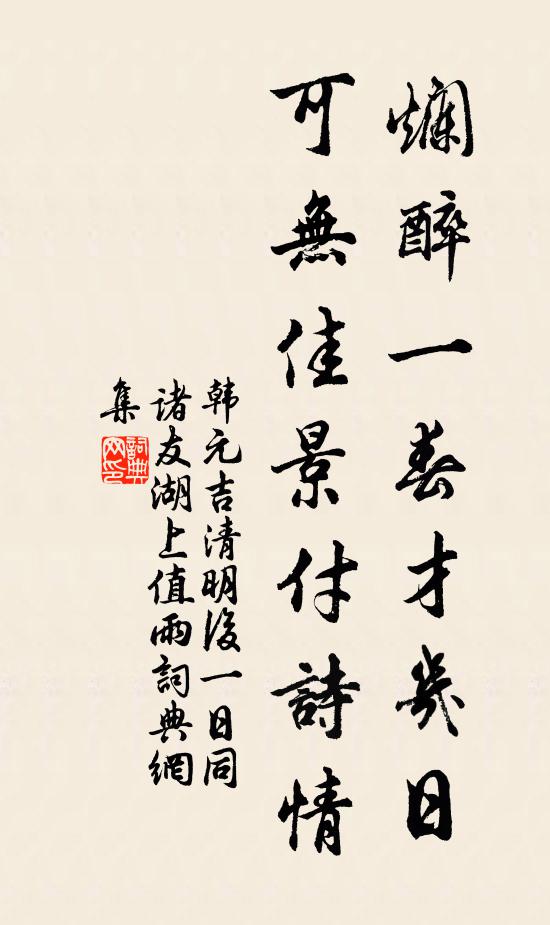 爛醉一春才幾日
可無佳景付詩情
韩元吉清明後一日同
诸友湖上值雨詞典網
集
詞典
网印